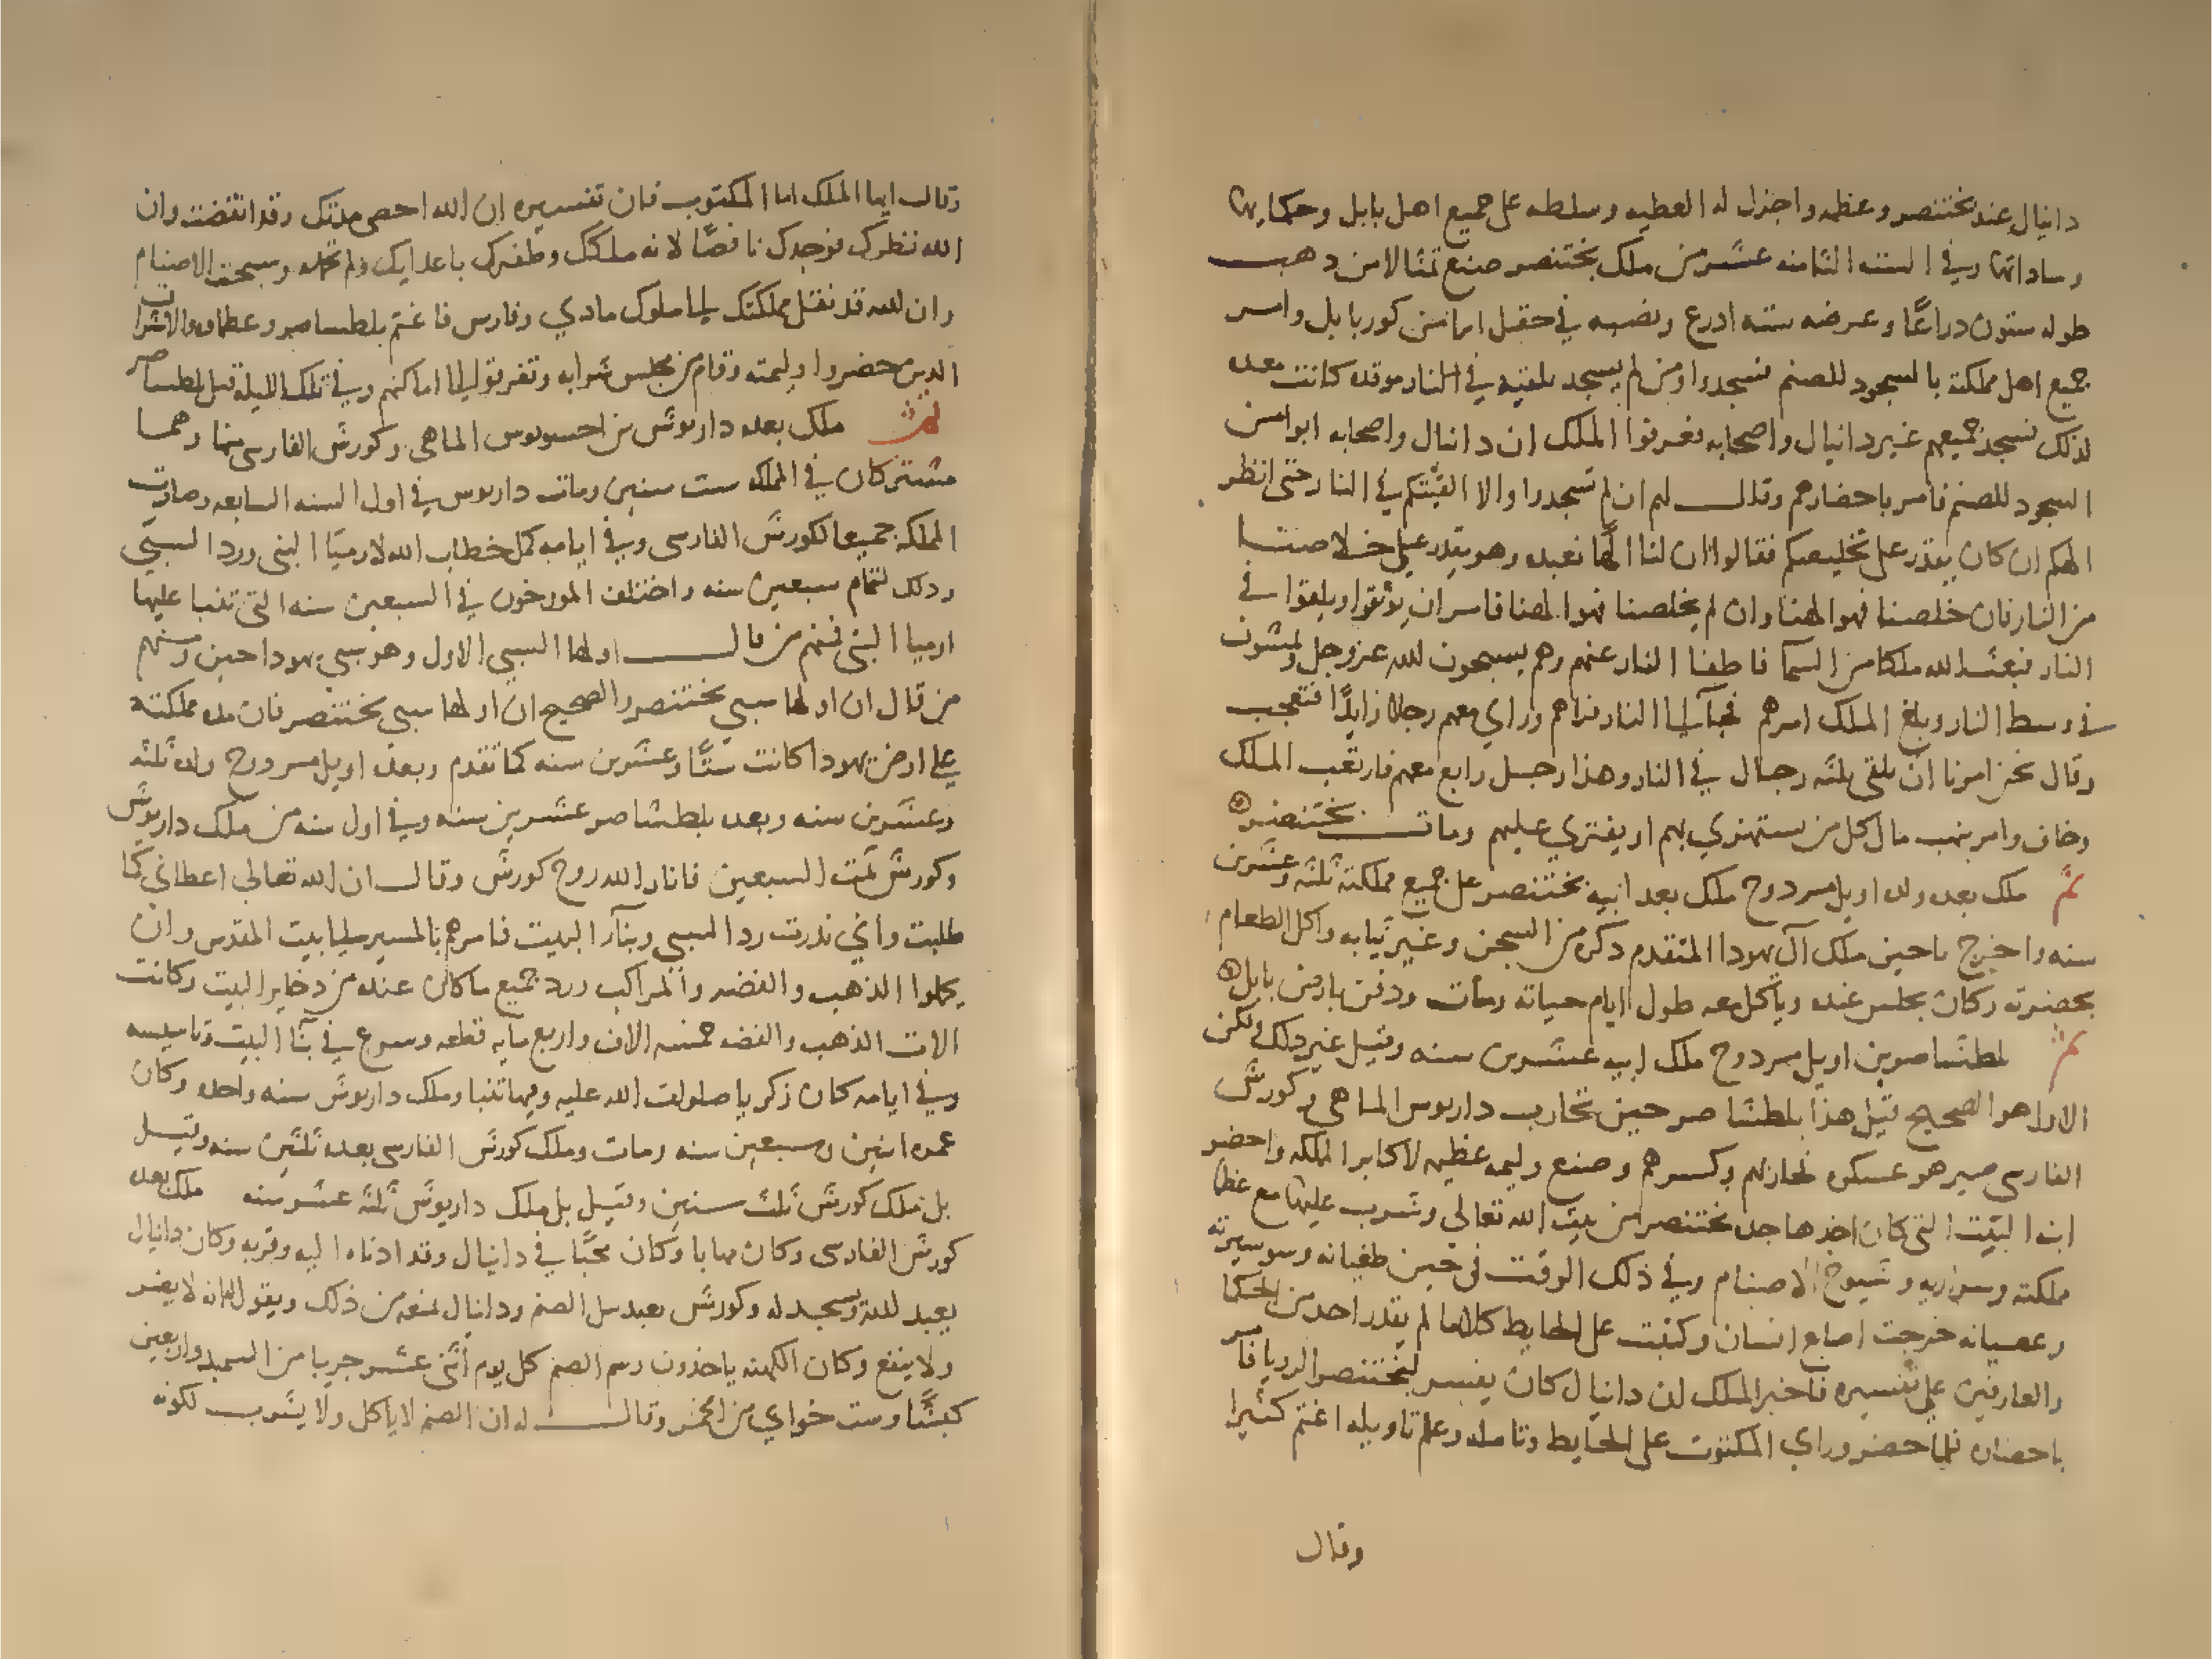 دانيال عند بختنصر وعظمه واجزل له العطيه وسلطه على جميع اهل بابل وحكمايها
وساداتها وفي السنه الثامنه عشر من ملك بختنصر صنع تمثالا من دهب
طوله ستون دراعًا وعرضه سته ادرع ونصبه في حقل اما من كور بابل وامر
جميع اهل مملكته بالسجود للصنم فسجدوا ومن لم يسجد يلقيه في النار موقده كانت معده
لذلك فسجد جميعهم غير دانيال واصحابه فعرفوا الملك ان دانيال واصحابه ابوا من
السجود للصنم فامر باحضارهم وقال لهم ان لم تسجدوا والا القيتكم في النار حتى انظر
الهكم ان كان يقدر على تخليصكم فقالوا ان لنا الهًا نعبده وهو يقدر على خلاصنا
من النار فان خلصنا فهو الهنا وان لم يخلصنا فهوا الهنا فامر ان يوثقوا ويلقوا في
النار فبعث الله ملكا من السما فاطفا النار عنهم وهم يسبحون لله عز وجل ويمشون
في وسط النار وبلغ الملك امرهم فجآ الى النار فراهم وراي معهم رجلا زايدًا فتعجب
وقال نحن امرنا ان يلقى ثلثه رجال في النار وهذا رجل رابع معهم فارتعب الملك
وخاف وامر بنهب مال كل من يستهزي بهم او يفتري عليهم ومات بختنصر
ثم ملك بعده ولده اويل مردوخ ملك بعد ابيه بختنصر على جميع مملكته ثلثه وعشرين
سنه واخرج ياحين ملك آل يهودا المتقدم دكره من السجن وغير ثيابه واكل الطعام
بحضرته وكان يجلس عنده وياكل معه طول ايام حياته ومات ودفن بارض بابل
ثم بلطشاصر بن اويل مردوخ ملك ابيه عشرين سنه وقيل غير دلك ولكن
الاول هو الصحيح قيل هذا بلطشاصر حين تحارب داريوس الماهي وكورش
الفارسي صير هو عسكره لمحاربهم وكسرهم وصنع وليمه عظيمه لاكابر المملكه واحضر
انيه البيت التي كان اخدها جده بختنصر من بيت الله تعالى وشرب عليها مع عظما
مملكته وسراريه وشيوخ الاصنام وفي ذلك الوقت في حين طغيانه وسو سيرته
وعصيانه خرجت اصابع انسان وكتبت على الحايط كلاما لم يقدر احد من الحكما
والعارفين على تفسيره فاخبر الملك ان دانيال كان يفسر لبختنصر الرويا فامر
باحضاره فلما حضر وراي المكتوب على الحايط وتامله وعلم تاويله اغتم كثيرا
وقال
وقال ايها الملك اما المكتوب فان تفسيره ان الله احصى مدتك وقد انقضت وان
الله نظرك فوجدك ناقصًا لانه ملكك وظفرك باعدايك ولم تحمده وسبحت الاصنام
وان لله قد نقل مملكتك الى ملوك مادي وفارس فاغتم بلطشاصر وعظماوه والاشراف
الدين حضروا وليمته وقام من مجلس شرابه وتفرقوا الى اماكنهم وفي تلك الليله قتل بلطشاصر
ثم ملك بعده داريوش بن احسويوس الماهي وكورش الفارسي معا وهما
مشتركان في المملكه ست سنين ومات داريوس في اول السنه السابعه وصارت
المملكه جميعا لكورش الفارسي وفي ايامه كمل خطاب الله لارميا النبي ورد السبي
ودلك لتمام سبعين سنه واختلف المورخون في السبعين سنه التي تنبا عليها
ارميا النبي فمنهم من قال اولها السبي الاول وهو سبي يهوداحين ومنهم
من قال ان اولها سبي بختنصر والصحيح ان اولها سبي بختنصر فان مده مملكته
على ارض يهودا كانت ستًا وعشرين سنه كما تقدم وبعده اويل مردوخ ولده ثلثه
وعشرين سنه وبعده بلطشاصر عشرين سنه وفي اول سنه من ملك داريوش
وكورش تمت السبعين فاثار الله روح كورش وقال ان الله تعالى اعطاني كما
طلبت واني ندرت رد السبي وبنآ البيت فامرهم بالمسير الى بيت المقدس وان
يحملوا الذهب والفضه والمراكب ورد جميع ما كان عنده من دخاير البيت وكانت
الات الذهب والفضه خمسه الاف واربع مايه قطعه وسرع في بنآ البيت وتاسيسه
وفي ايامه كان زكريا صلوات الله عليه وفيها تنبا وملك داريوش سنه واحده وكان
عمره اثنين وسبعين سنه ومات وملك كورش الفارسي بعده ثلثين سنه وقيل
بل ملك كورش ثلث سنين وقيل بل ملك داريوش ثلثه عشر سنه ملك بعده
كورش الفارسي وكان مهابا وكان محبًا في دانيال وقد ادناه اليه وقربه وكان دانيال
يعبد لله ويسجد له وكورش يعبد بيل الصنم ودانيال يمنعه من ذلك ويقول له انه لا يضر
ولا ينفع وكان الكهنه ياخذون رسم الصنم كل يوم اثنى عشر جريبا من السميد واربعين
كبشًا وست خوابي من الخمر وقال له ان الصنم لا ياكل ولا يشرب لكونه